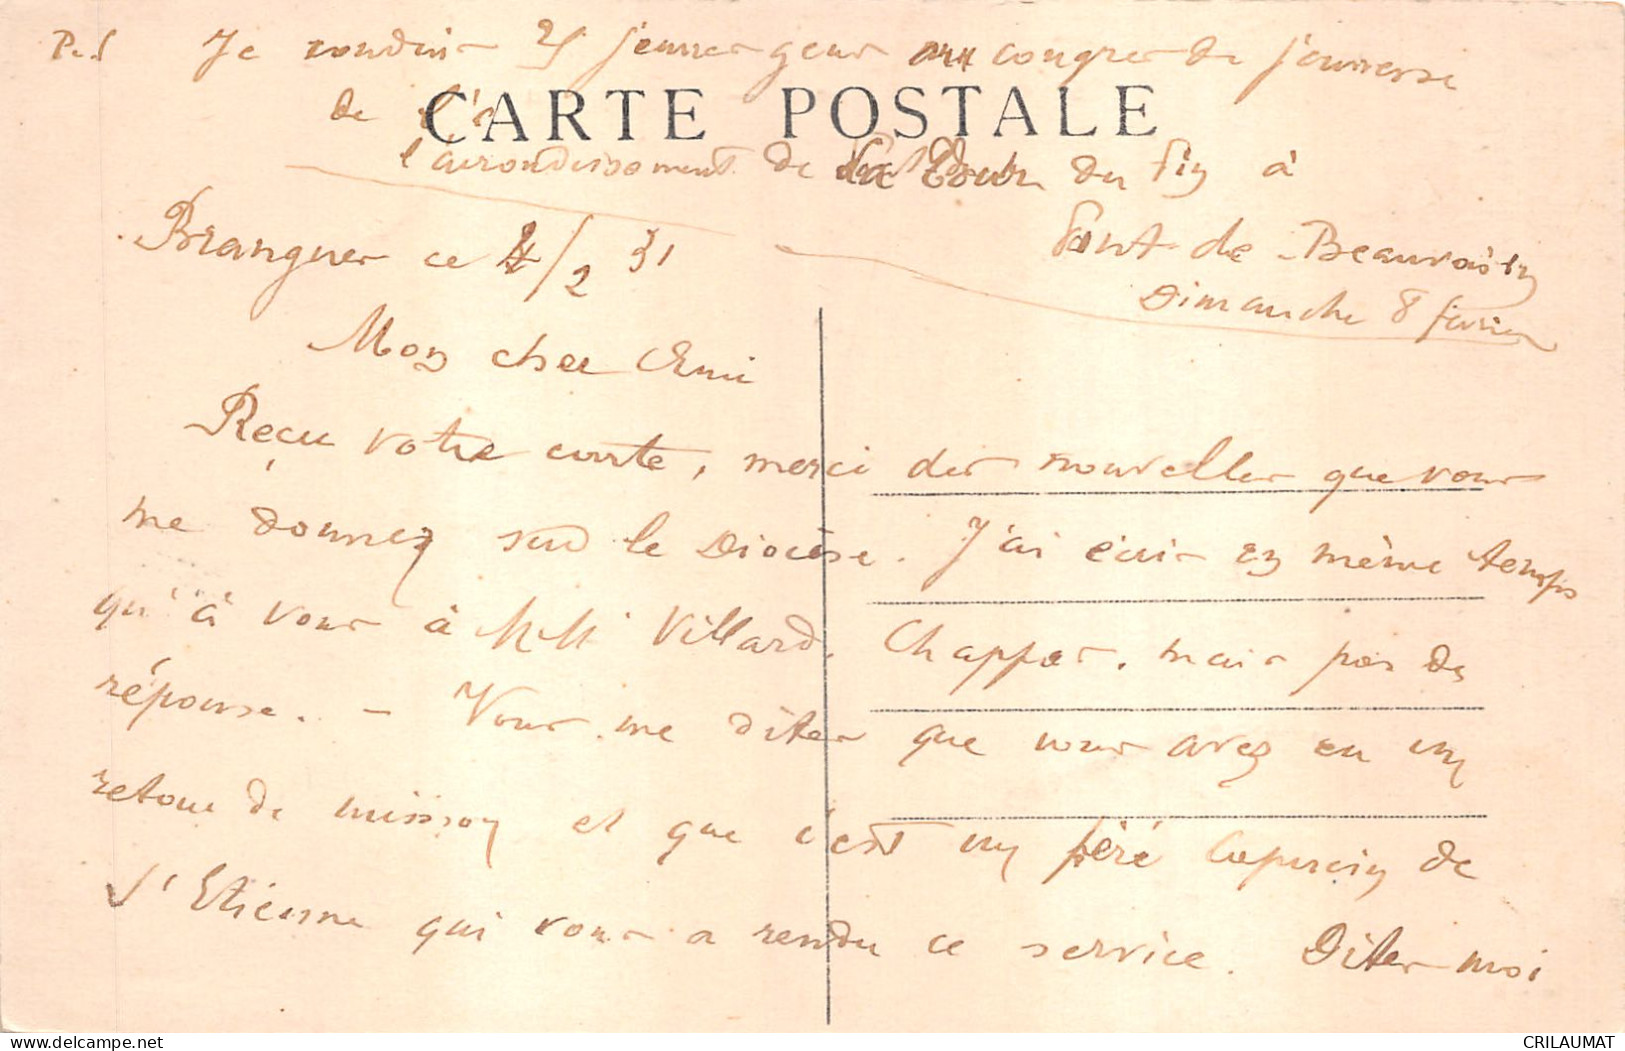 P.S Je conduis 25 jeunes gens au congres de jeunesse
de
CARTE POSTALE
l'arrondissement de La Tour du Pin à
Pont de Beauvoisin
Dimanche 8 février
Brangues ce 4/2 31
Mon cher Ami
Reçu votre carte, merci des nouvelles que vous
me donnez sur le Diocèse. J'ai écris en même temps
qu'à vous à Villard, Chappas, mais pas de
réponse. - Vous me dites que vous avez eu un
retour de mission et que c'est un père Capucin de
St Etienne qui vous a rendu ce service. Dites-moi
delcampe.net
CRILAUMAT